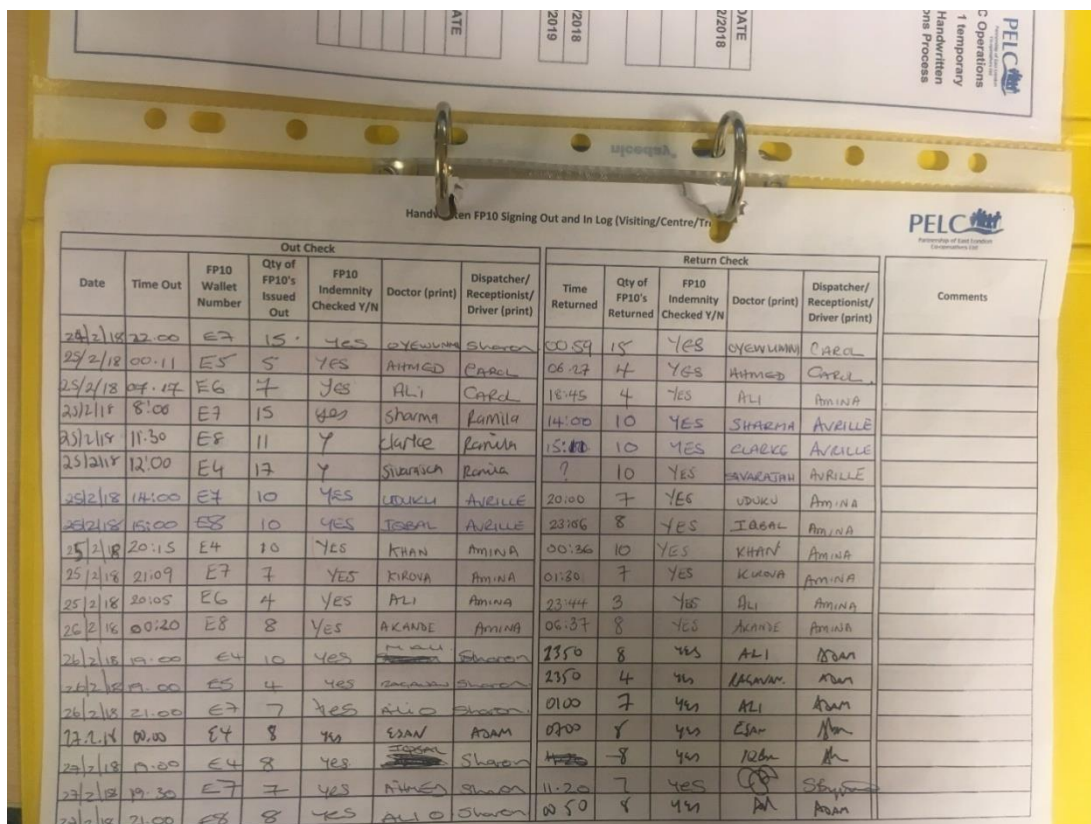 DATE
2/2018
/2018
2019
DATE
PELC
C Operations
1 temporary
Handwritten
ons Process
niceday
Handwritten FP10 Signing Out and In Log (Visiting/Centre/Tr
PELC
Partnership of East London Co-operatives Ltd
Out Check Return Check
Date Time Out FP10 Wallet Number Qty of FP10's Issued Out FP10 Indemnity Checked Y/N Doctor (print) Dispatcher/ Receptionist/ Driver (print) Time Returned Qty of FP10's Returned FP10 Indemnity Checked Y/N Doctor (print) Dispatcher/ Receptionist/ Driver (print) Comments
24/2/18 22.00 E7 15 yes OYEWUMI Sharon 00:59 15 YES OYEWUMI CAROL
25/2/18 00.11 E5 5 YES AHMED CAROL 06.27 4 YES AHMED CAROL
25/2/18 07.17 E6 7 Yes ALI CAROL 18:45 4 YES ALI AMINA
25/2/18 8:00 E7 15 yes Sharma Ramila 14:00 10 YES SHARMA AVRILLE
25/2/18 11.30 E8 11 Y Clarke Ramila 10 YES CLARKE AVRILLE
25/2/18 12:00 E4 17 Y Ramila ? 10 YES SAVARAJAH AVRILLE
25/2/18 14:00 E7 10 YES UDUKU AVRILLE 20:00 7 YES UDUKU AMINA
25/2/18 15:00 E8 10 YES IQBAL AVRILLE 23:06 8 YES IQBAL AMINA
25/2/18 20:15 E4 10 YES KHAN AMINA 00:36 10 YES KHAN AMINA
25/2/18 21:09 E7 7 YES KIROVA AMINA 01:30 7 YES KIROVA AMINA
25/2/18 20:05 E6 4 Yes ALI AMINA 23:44 3 Yes ALI AMINA
26/2/18 00:20 E8 8 Yes AKANDE AMINA 06:37 8 YES AKANDE AMINA
26/2/18 19.00 E4 10 yes Sharon 2350 8 yes ALI ADAM
26/2/18 19.00 E5 4 yes RAGAVAN Sharon 2350 4 yes RAGAVAN. ADAM
26/2/18 21.00 E7 7 Yes ALI O Sharon 0100 7 yes ALI ADAM
27.2.18 00.00 E4 8 yes ESAN ADAM 0700 8 yes ESAN
27/2/18 19.00 E4 8 yes IQBAL Sharon 8 yes
27/2/18 19.30 E7 7 yes AHMED Sharon 11.20 7 yes
27/2/18 21.00 E8 8 yes ALI O Sharon 00 50 8 yes ADAM